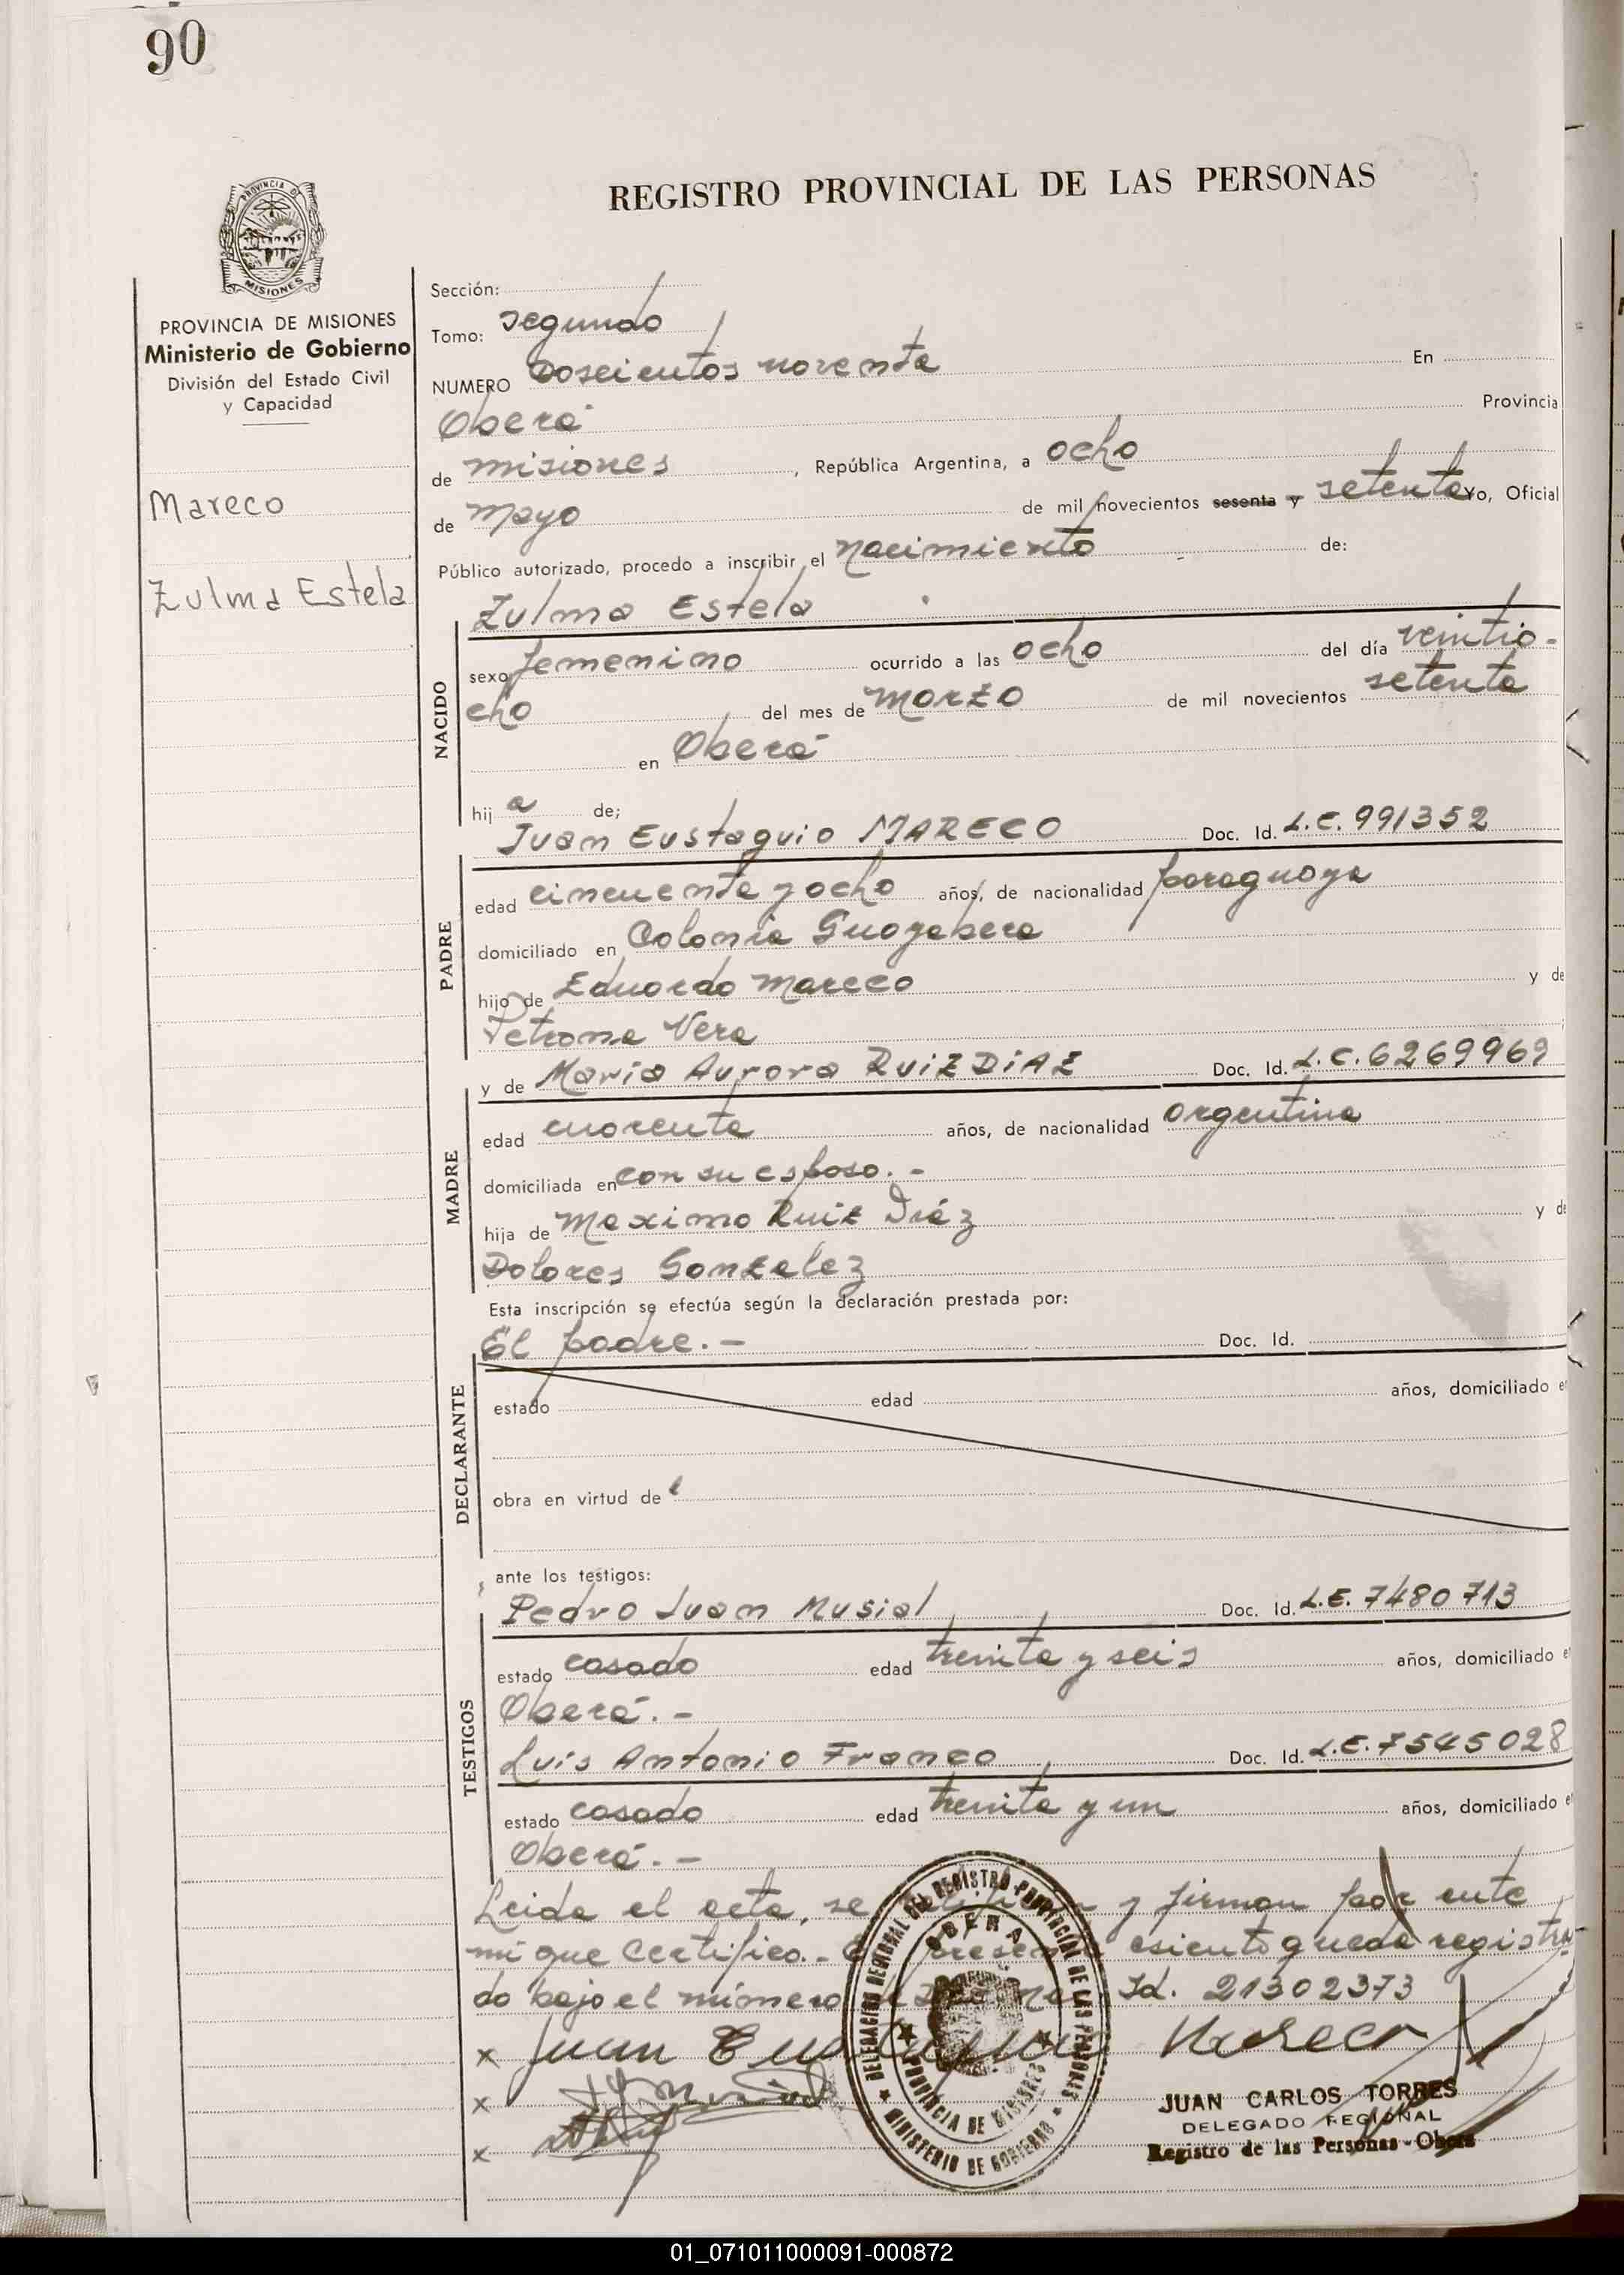 90
REGISTRO PROVINCIAL DE LAS PERSONAS
PROVINCIA DE
MISIONES
PROVINCIA DE MISIONES
Ministerio de Gobierno
División del Estado Civil
y Capacidad
Mareco
Zulma Estela
Sección:
Tomo: segundo
NUMERO Doscientos noventa En
Oberá Provincia
de misiones, República Argentina, a ocho
de mayo de mil novecientos sesenta y setenta yo, Oficial
Público autorizado, procedo a inscribir el nacimiento de:
Zulma Estela
NACIDO
sexo femenino ocurrido a las ocho del día veintio-
cho del mes de marzo de mil novecientos setenta
en Oberá
hija de;
Juan Eustaquio MARECO Doc. Id. L.E. 991352
PADRE
edad cincuenta y ocho años, de nacionalidad paraguaya
domiciliado en Colonia Guayabera
hijo de Eduardo Mareco y de
Petrona Vera
y de Maria Aurora RUIZ DIAZ Doc. Id. L.C. 6269969
MADRE
edad cuarenta años, de nacionalidad argentina
domiciliada en con su esposo. -
hija de Maximo Ruiz Diáz y de
Dolores Gonzalez
Esta inscripción se efectúa según la declaración prestada por:
El padre. - Doc. Id.
DECLARANTE
estado edad años, domiciliado e
obra en virtud de
ante los testigos:
Pedro Juan Musial Doc. Id. L.E. 7480713
TESTIGOS
estado casado edad treinta y seis años, domiciliado e
Oberá. -
Luis Antonio Franco Doc. Id. L.E. 7545028
estado casado edad treinta y un años, domiciliado e
Oberá. -
Leida el acta, se y firman por ante
mi que certifico. - asiento queda registra-
do bajo el número Id. 21302373
x Juan Mareco
x
x
DELEGACION REGIONAL DEL REGISTRO PROVINCIAL DE LAS PERSONAS
OBERA
PROVINCIA DE MISIONES
MINISTERIO DE GOBIERNO
JUAN CARLOS TORRES
DELEGADO REGIONAL
Registro de las Personas - Obera
01_071011000091-000872